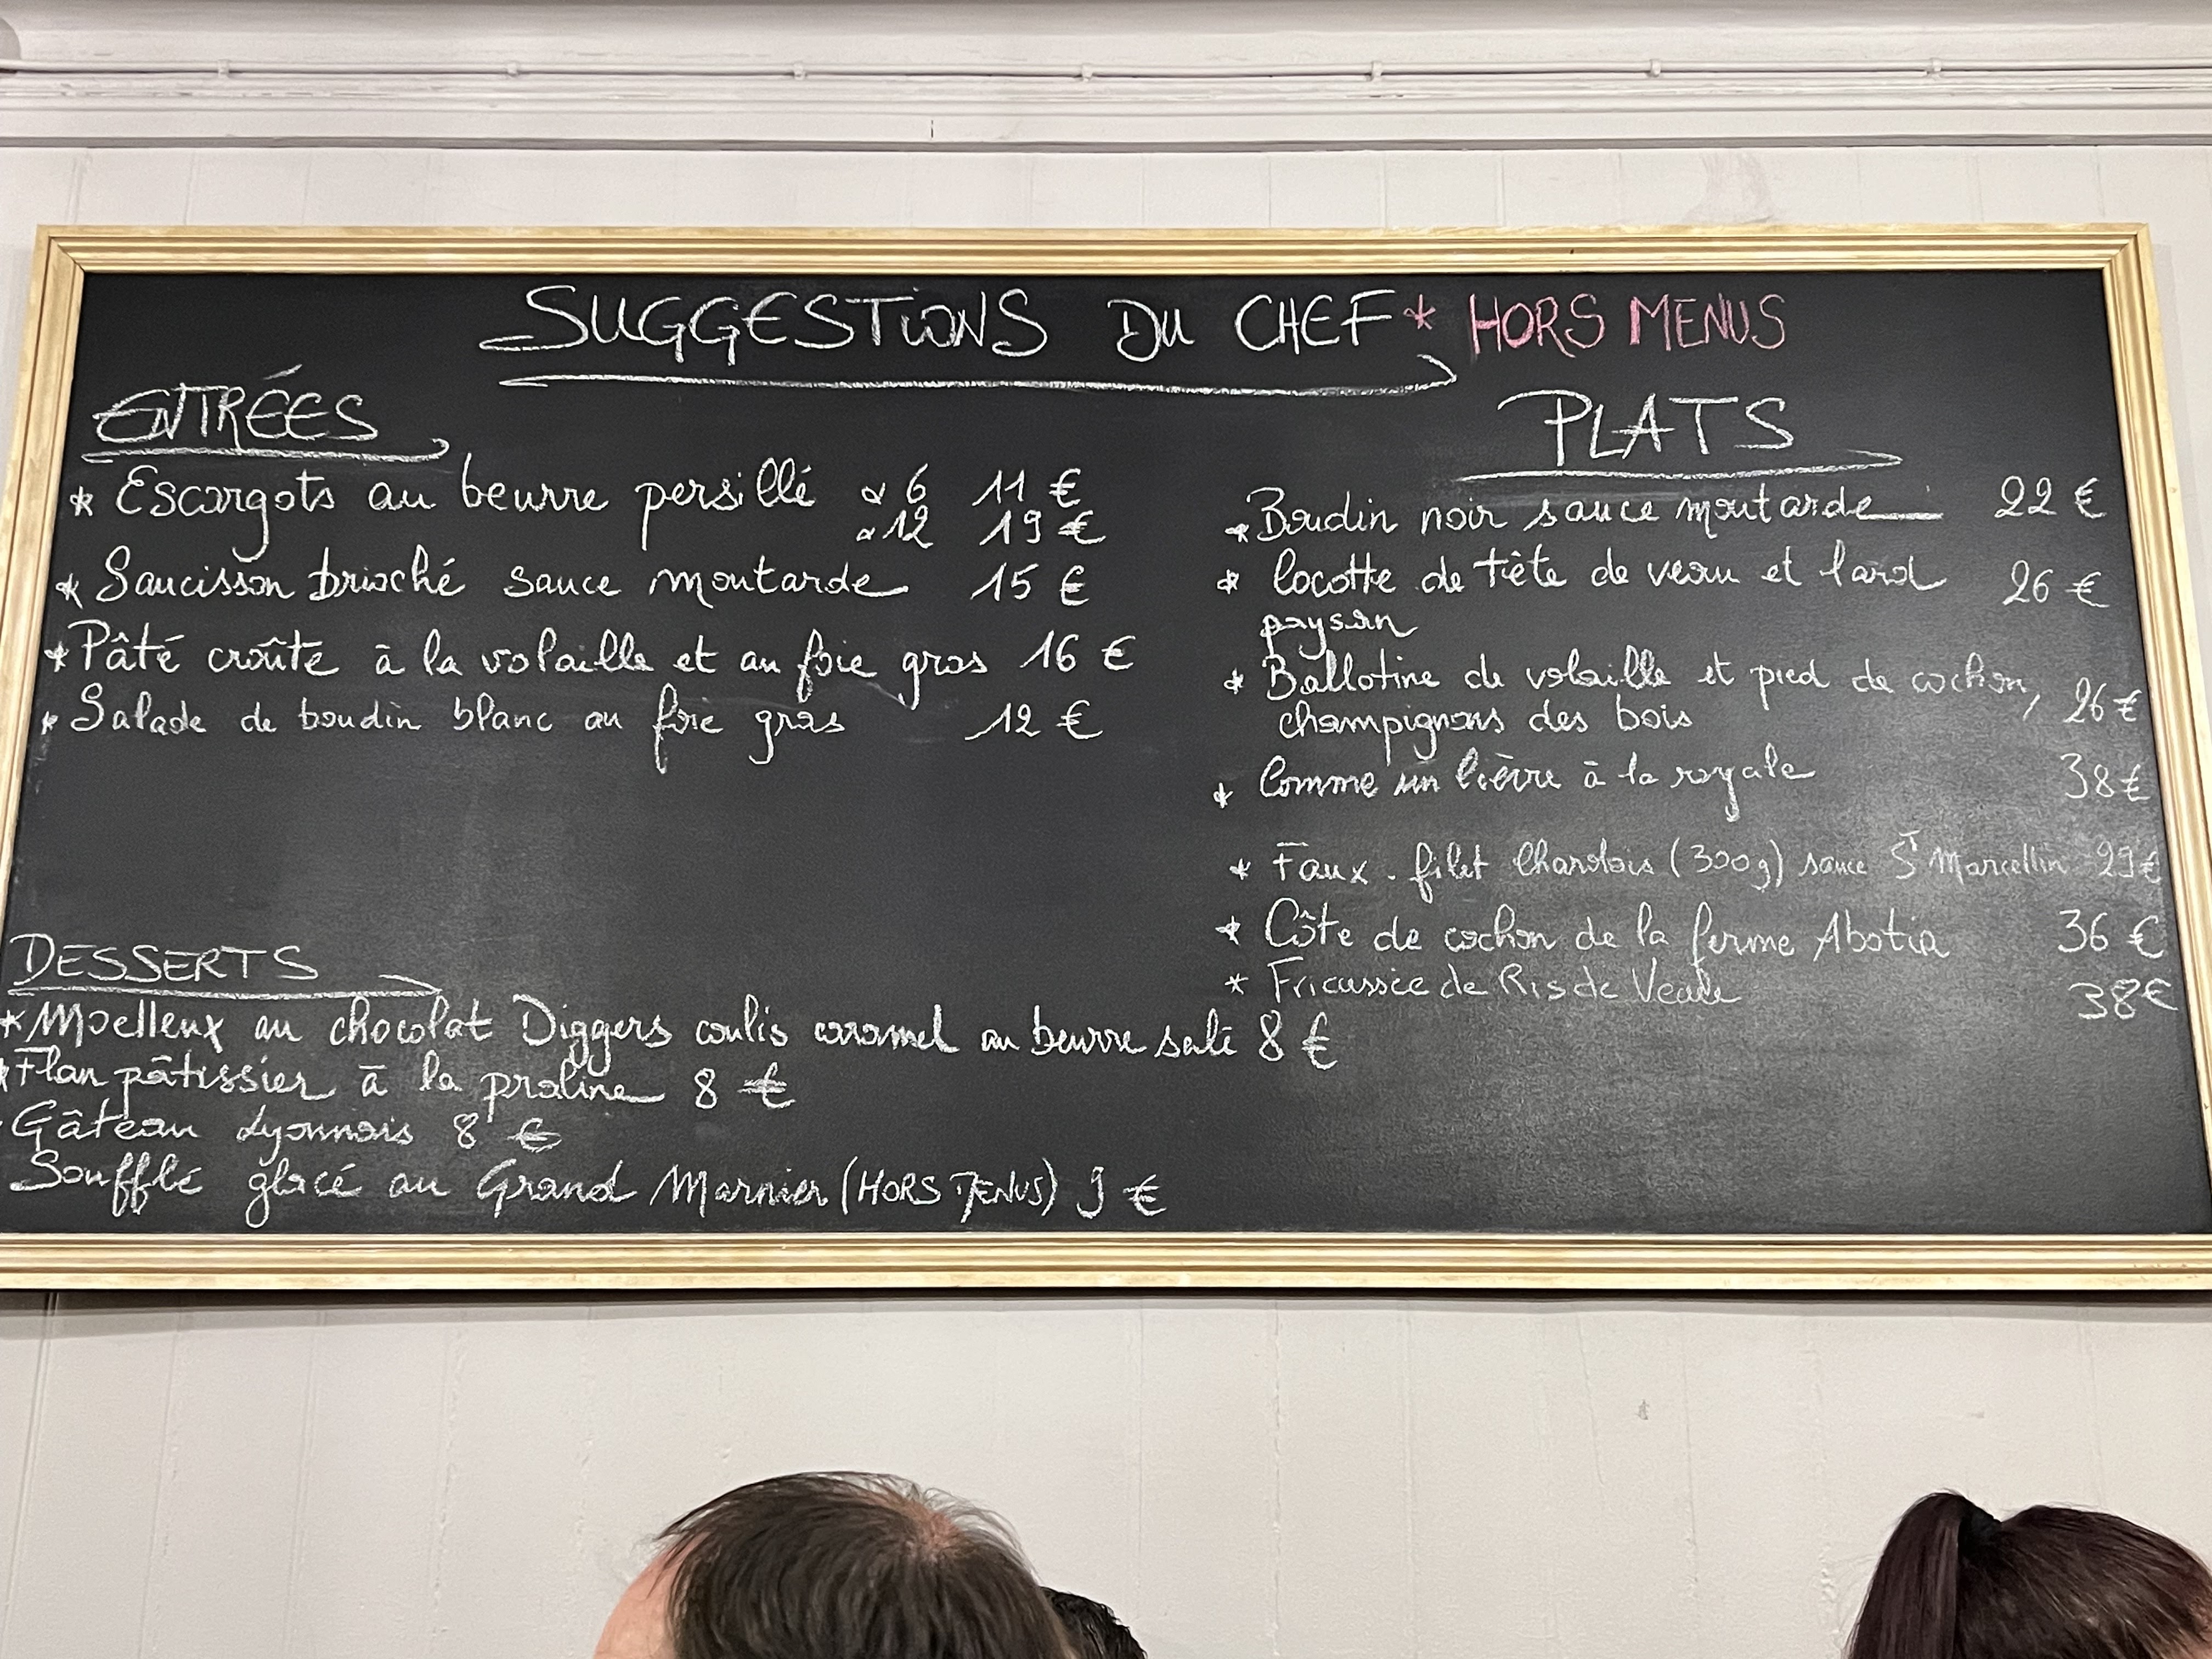 SUGGESTIONS DU CHEF * HORS MENUS
ENTRÉES
* Escargots au beurre persillé x 6 11 €
x 12 19 €
* Saucisson brioché sauce moutarde 15 €
* Pâté croûte à la volaille et au foie gras 16 €
* Salade de boudin blanc au foie gras 12 €
PLATS
* Boudin noir sauce moutarde 22 €
* Cocotte de tête de veau et lard 26 €
paysan
* Ballotine de volaille et pied de cochon,
champignons des bois 26 €
* Comme un lièvre à la royale 38 €
* Faux-filet Charolais (300g) sauce St Marcellin 29 €
* Côte de cochon de la ferme Abotia 36 €
* Fricassée de Ris de Veau 38 €
DESSERTS
* Moelleux au chocolat Diggers coulis caramel au beurre salé 8 €
* Flan pâtissier à la praline 8 €
Gâteau Lyonnais 8 €
Soufflé glacé au Grand Marnier (HORS MENUS) 9 €